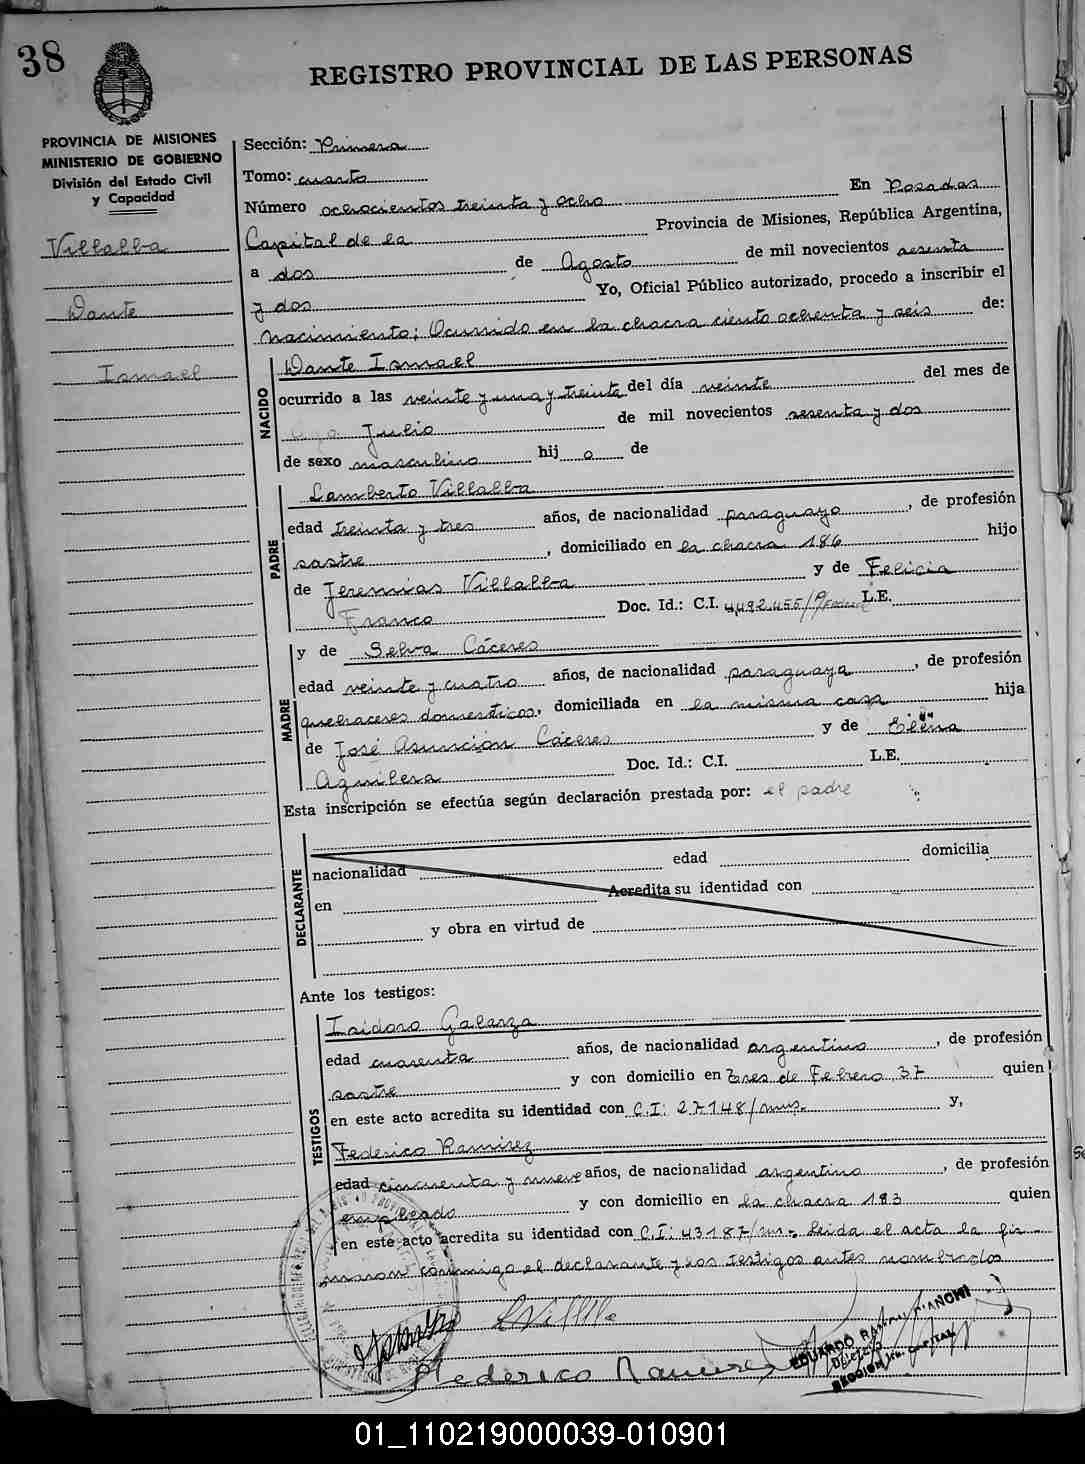 38
REGISTRO PROVINCIAL DE LAS PERSONAS
PROVINCIA DE MISIONES
MINISTERIO DE GOBIERNO
División del Estado Civil
y Capacidad
Villalba
Dante
Ismael
Sección: Primera
Tomo: cuarto
Número ochocientos treinta y ocho En Posadas
Capital de la Provincia de Misiones, República Argentina,
a dos de Agosto de mil novecientos sesenta
y dos Yo, Oficial Público autorizado, procedo a inscribir el
nacimiento; Ocurrido en la chacra ciento ochenta y seis de:
NACIDO
Dante Ismael
ocurrido a las veinte y una y treinta del día veinte del mes de
Julio de mil novecientos sesenta y dos
de sexo masculino hij o de
PADRE
Lamberto Villalba
edad treinta y tres años, de nacionalidad paraguayo, de profesión
sastre, domiciliado en la chacra 186 hijo
de Jeremías Villalba y de Felicia
Franco Doc. Id.: C.I. 4492.455/P. L.E.
MADRE
y de Selva Cáceres
edad veinte y cuatro años, de nacionalidad paraguaya, de profesión
quehaceres domesticos, domiciliada en la misma casa hija
de José Asunción Cáceres y de Elena
Aguilera Doc. Id.: C.I. L.E.
Esta inscripción se efectúa según declaración prestada por: el padre
DECLARANTE
nacionalidad edad domicilia
en Acredita su identidad con
y obra en virtud de
Ante los testigos:
TESTIGOS
Isidoro Galarza
edad cuarenta años, de nacionalidad argentino, de profesión
sastre y con domicilio en Tres de Febrero 37 quien
en este acto acredita su identidad con C.I: 27148/mns. y,
Federico Ramirez
edad cincuenta y nueve años, de nacionalidad argentino, de profesión
empleado y con domicilio en la chacra 183 quien
en este acto acredita su identidad con C.I: 43187/mns. Leida el acta la fir-
maron conmigo el declarante y los testigos antes nombrados
LVillalba
Federico Ramirez
EDUARDO
CAPITAL
01_110219000039-010901